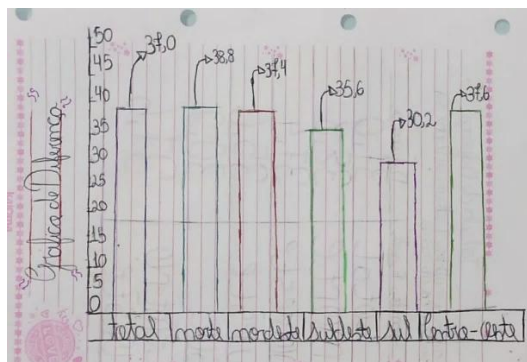 Gráfico de Diferença
50
45
40
35
30
25
20
15
10
5
0
37,0
38,8
37,4
35,6
30,2
37,6
total norte nordeste sudeste sul Centro-Oeste